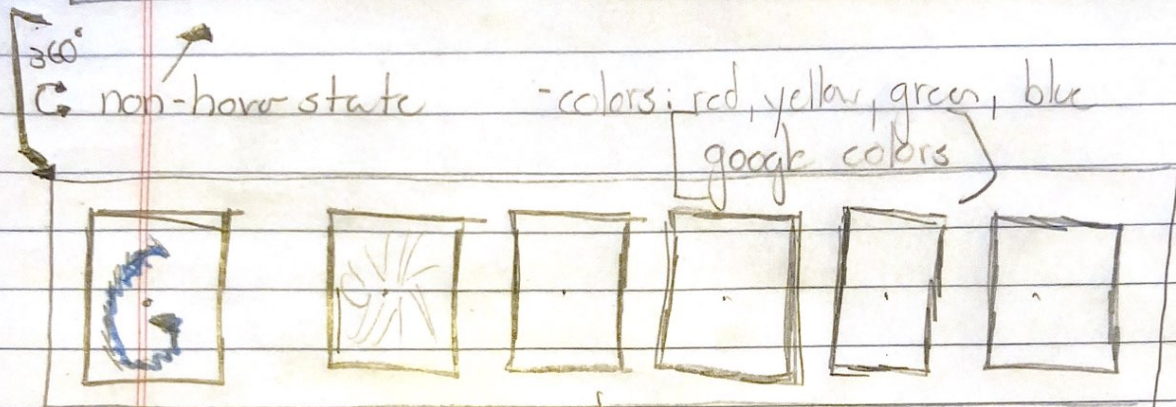 360°
non-hover state -colors: red, yellow, green, blue
google colors
G